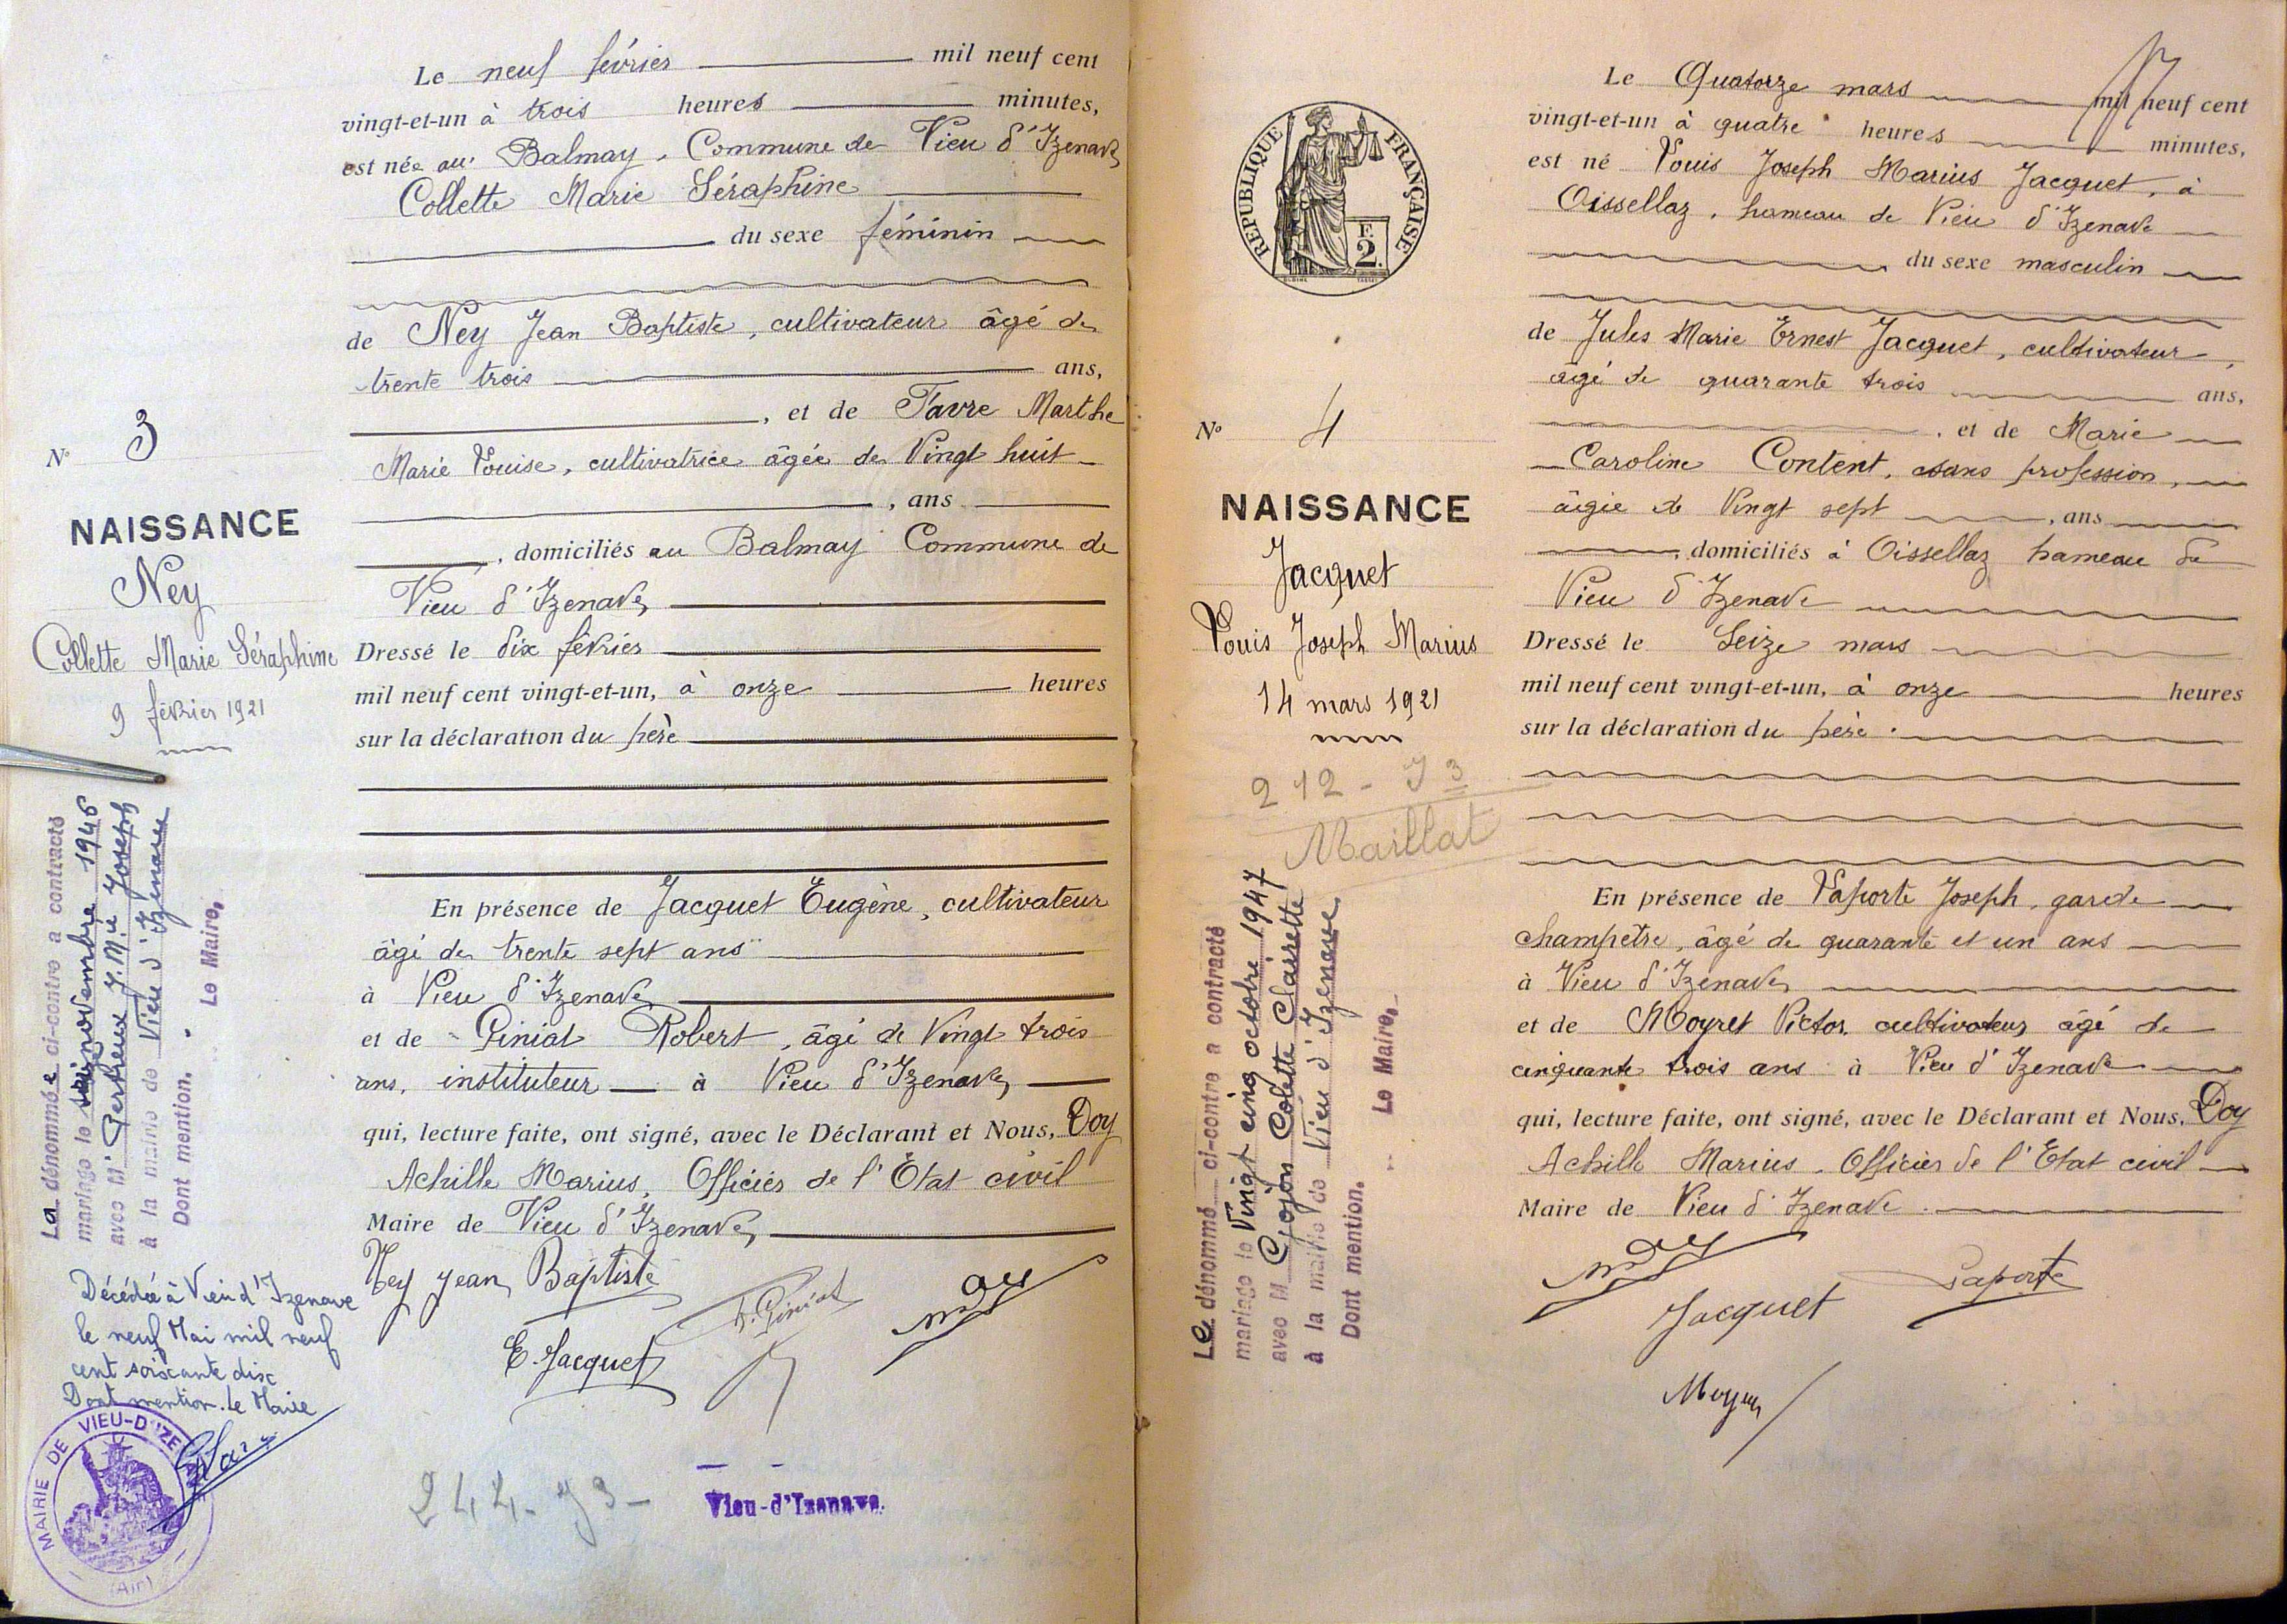 Le neuf février mil neuf cent
vingt-et-un à trois heures minutes,
est née au Balmay, Commune de Vieu d'Izenave
Collette Marie Séraphine
du sexe féminin
de Ney Jean Baptiste, cultivateur âgé de
trente trois ans,
, et de Favre Marthe
Marie Louise, cultivatrice âgée de Vingt huit
, ans
, domiciliés au Balmay Commune de
Vieu d'Izenave
Dressé le dix février
mil neuf cent vingt-et-un, à onze heures
sur la déclaration du père
En présence de Jacquet Eugène, cultivateur
âgé de trente sept ans
à Vieu d'Izenave
et de Giniat Robert, âgé de Vingt trois
ans, instituteur à Vieu d'Izenave
qui, lecture faite, ont signé, avec le Déclarant et Nous, Doy
Achille Marius, Officier de l'Etat civil
Maire de Vieu d'Izenave
Ney Jean Baptiste
R. Giniat
E. Jacquet
244-73-
Vieu-d'Izenave.
N° 3
NAISSANCE
Ney
Collette Marie Séraphine
9 février 1921
La dénommée ci-contre a contracté
mariage le novembre 1946
avec Mr Perreux J. Mie Joseph
à la mairie de Vieu d'Izenave
Dont mention.
Le Maire,
Décédée à Vieu d'Izenave
le neuf Mai mil neuf
cent soixante disc
Dont mention. Le Maire
MAIRIE DE VIEU-D'IZE
(Ain)
Le Quatorze mars mil neuf cent
vingt-et-un à quatre heures minutes,
est né Louis Joseph Marius Jacquet, à
Oissellaz, hameau de Vieu d'Izenave
du sexe masculin
de Jules Marie Ernest Jacquet, cultivateur,
âgé de quarante trois ans,
, et de Marie
Caroline Content, sans profession,
âgée de Vingt sept , ans
, domiciliés à Oissellaz hameau de
Vieu d'Izenave
Dressé le Seize mars
mil neuf cent vingt-et-un, à onze heures
sur la déclaration du père.
En présence de Laporte Joseph, garde
champêtre, âgé de quarante et un ans
à Vieu d'Izenave
et de Moyret Victor, cultivateur, âgé de
cinquante trois ans à Vieu d'Izenave
qui, lecture faite, ont signé, avec le Déclarant et Nous, Doy
Achille Marius, Officier de l'Etat civil
Maire de Vieu d'Izenave.
Laporte
Jacquet
REPUBLIQUE FRANÇAISE
F.
2.
N° 4
NAISSANCE
Jacquet
Louis Joseph Marius
14 mars 1921
212-73
Maillat
Le dénommé ci-contre a contracté
mariage le Vingt cinq octobre 1947
avec M Goyon Colette Clairette
à la mairie de Vieu d'Izenave
Dont mention.
Le Maire,